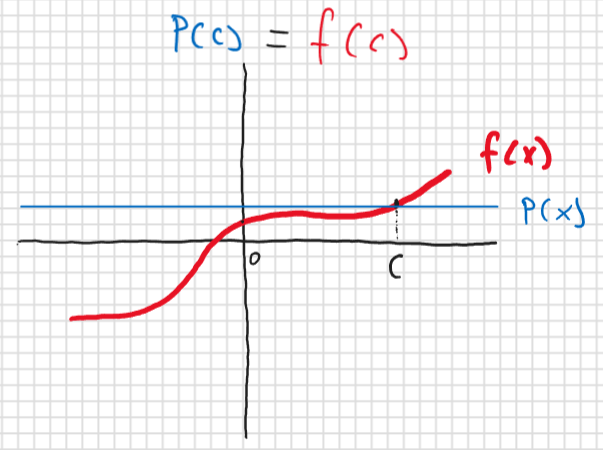 P(c) = f(c)
f(x)
P(x)
0
C